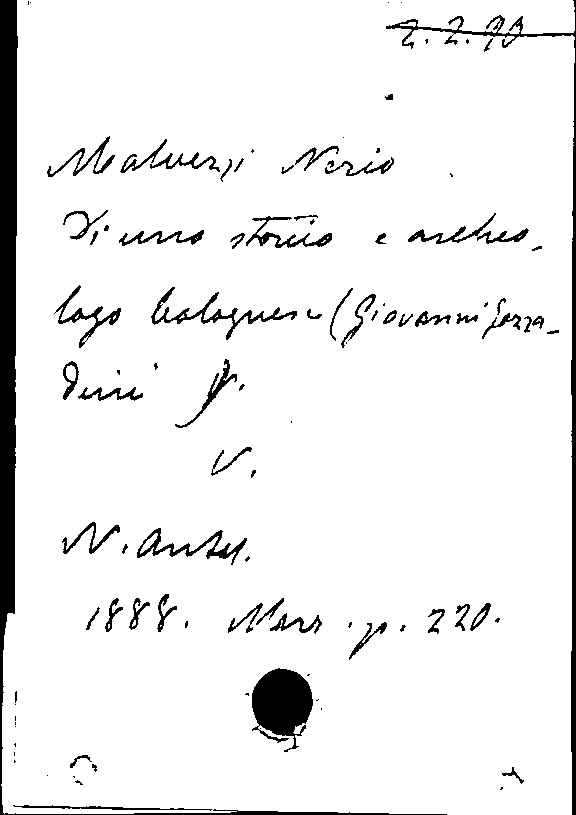 2.2.90
Malvezzi Nerio
Di uno storico e archeo-
logo bolognese (Giovanni Gozza-
dini).
V.
N. Antol.
1888. Marz. p. 220.